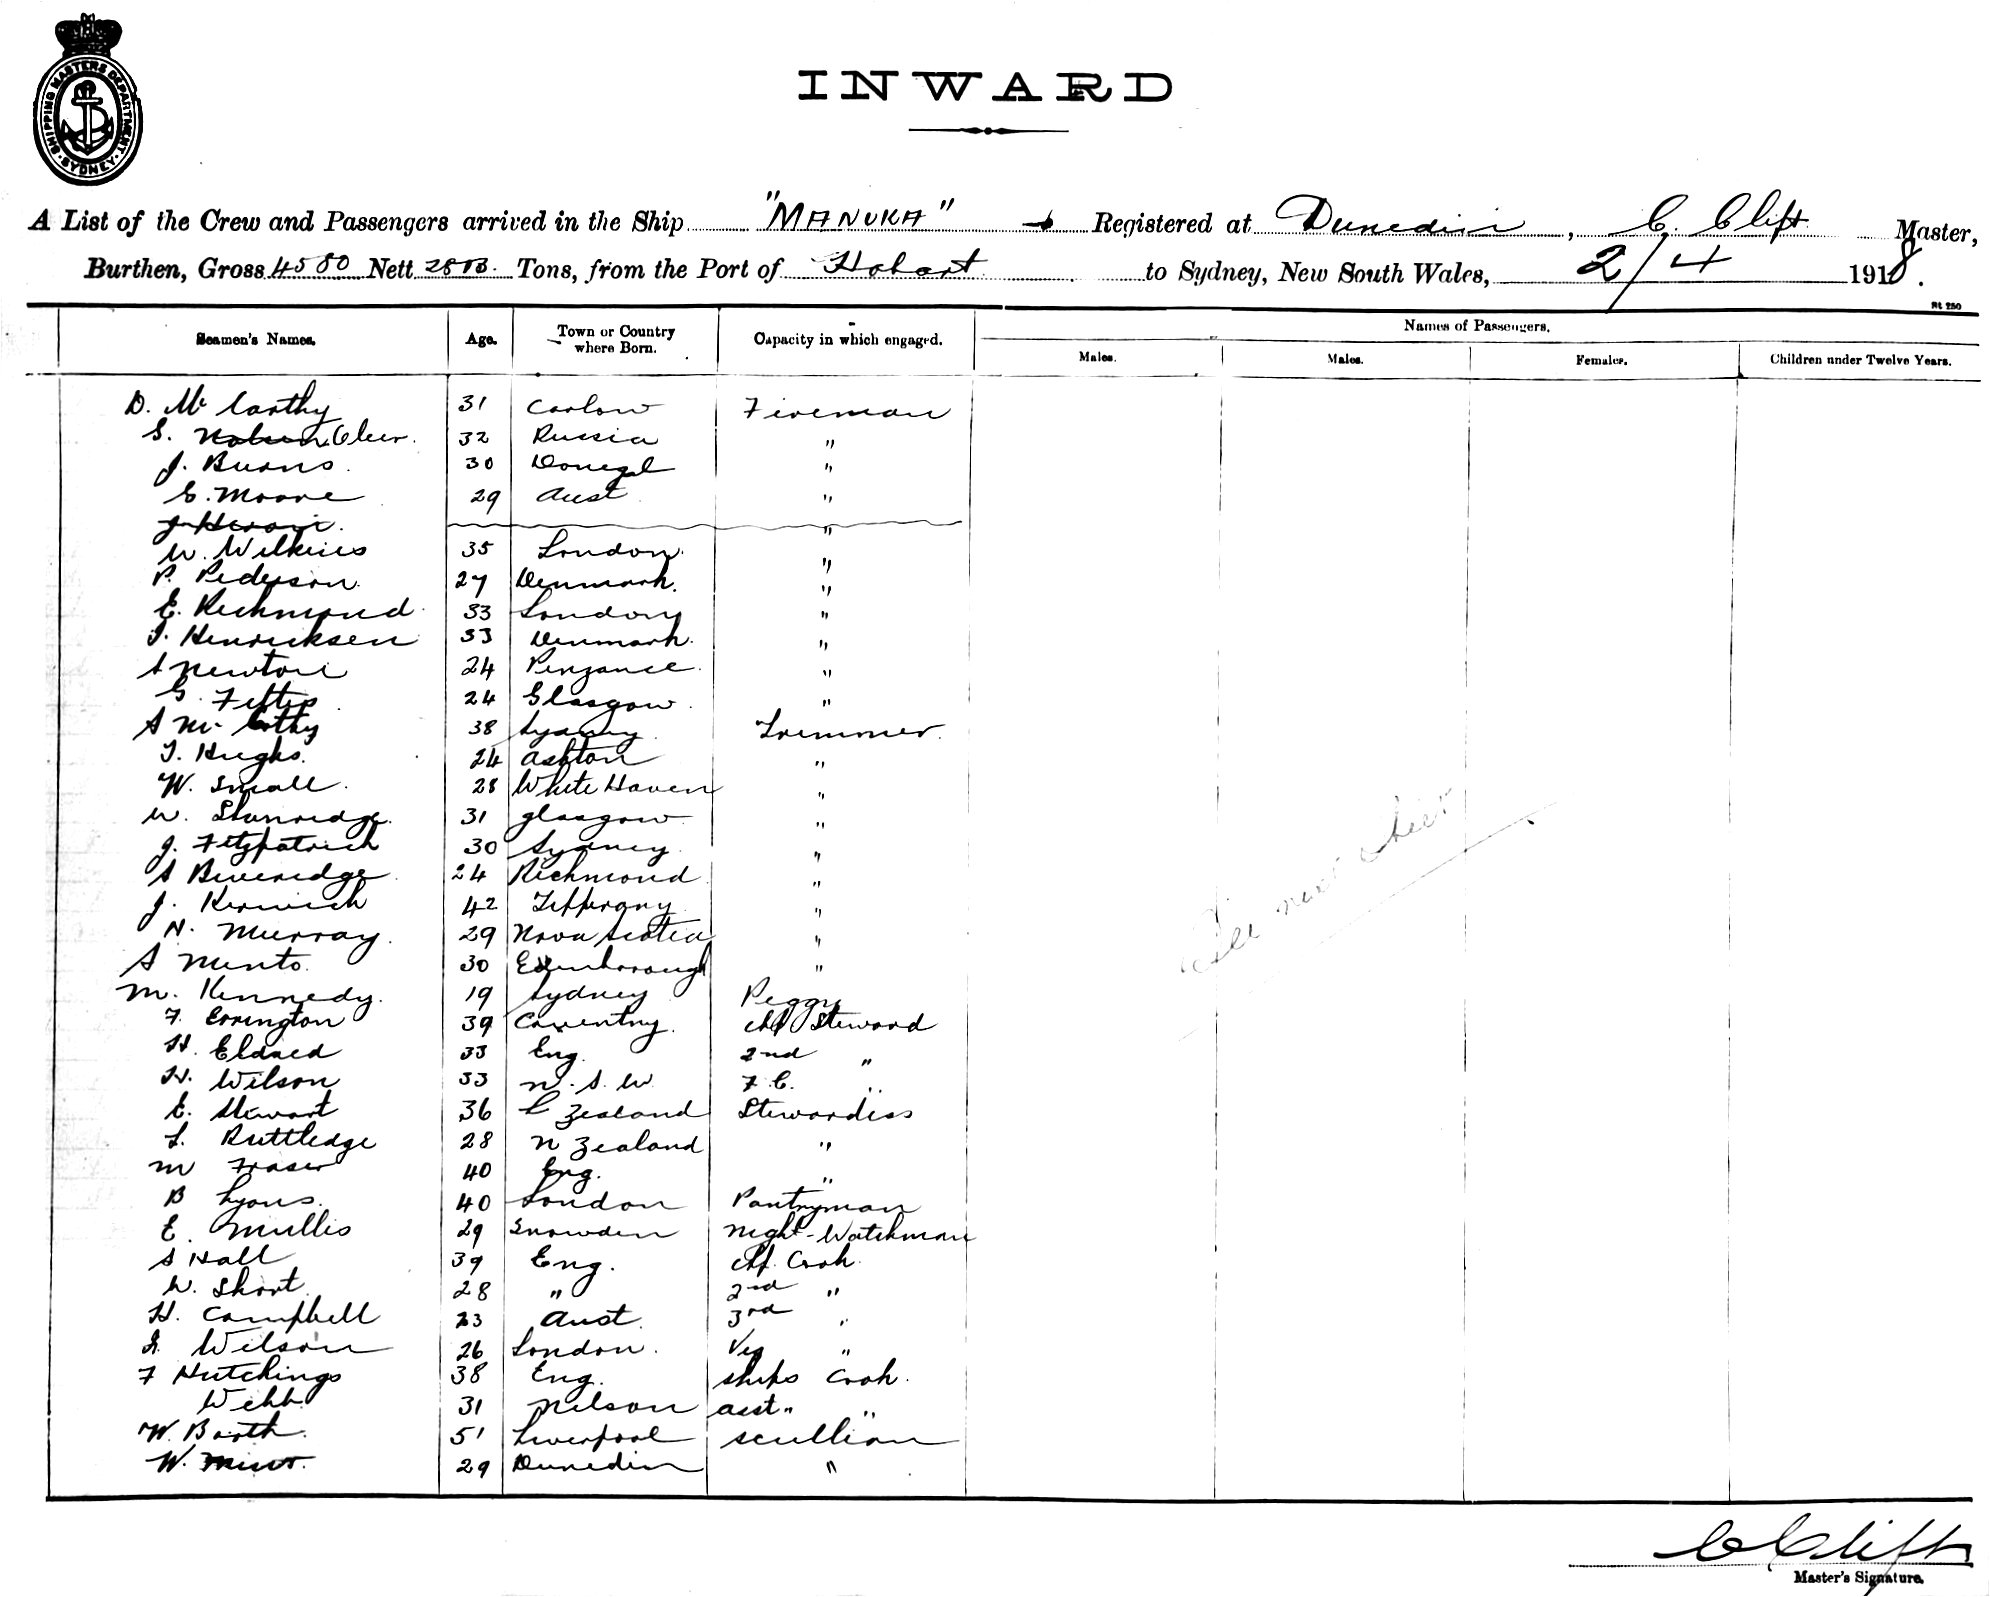 SHIPPING MASTERS DEPARTMENT · SYDNEY ·
INWARD
A List of the Crew and Passengers arrived in the Ship "MANUKA" Registered at Dunedin, C. Clift Master,
Burthen, Gross 4580 Nett Tons, from the Port of Hobart to Sydney, New South Wales, 2/4 1918.
Rt 250
Seamen's Names. Age. Town or Country where Born. Capacity in which engaged. Names of Passengers.
Males. Males. Females. Children under Twelve Years.
D. McCarthy 31 Carlow Fireman
S. 32 Russia "
J. Burns. 30 Donegal "
E. Moore 29 Aust "
"
W. Wilkins 35 London. "
P. Pederson. 27 Denmark. "
E. Richmond. 33 London "
J. Henricksen 33 Denmark. "
A Newton 24 Penzance. "
G. 24 Glasgow. "
A McCarthy 38 Sydney. Trimmer.
T. Hughs. 24 Ashton "
W. Small. 28 White Haven "
W. 31 Glasgow. "
J. Fitzpatrick 30 Sydney. "
A Beveridge. 24 Richmond "
J. Kerwick 42 Tipperary. "
N. Murray. 29 Nova Scotia "
A Minto. 30 Edinborough "
M. Kennedy. 19 Sydney Peggy
F. Errington 39 Coventry. Chf Steward
H. 33 Eng. 2nd "
H. Wilson 33 N. S. W. F. C. "
E. Stewart 36 Zealand Stewardess
L. Ruttledge 28 N Zealand "
M Fraser 40 Eng. "
B Lyons. 40 London Pantryman
E. Mullis 29 Snowden Night-Watchman
A Hall 39 Eng. Chf. Cook.
W. Short. 28 " 2nd "
H. Campbell 23 Aust. 3rd "
Wilson 26 London. Veg "
F Hutchings 38 Eng. Ships Cook.
Webb 31 Nelson asst " "
W. Barth. 51 Liverpool Scullion
W. 29 Dunedin "
See next sheet
C Clift
Master's Signature.